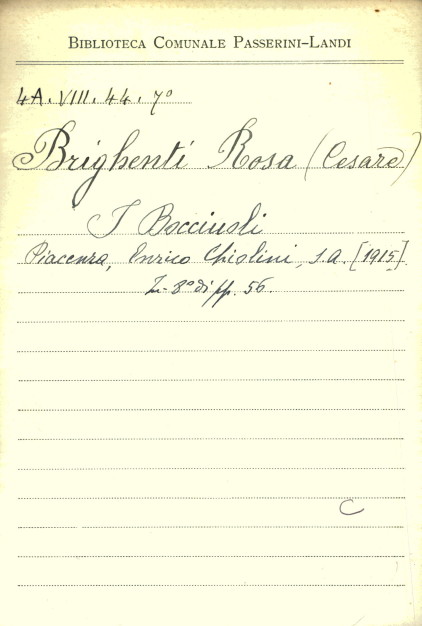 BIBLIOTECA COMUNALE PASSERINI-LANDI
4A. VIII. 44. 7º
Brighenti Rosa (Cesare)
I Bocciuoli
Piacenza, Enrico Ghiolini, s.a. [1915]
In-8º di pp. 56.
C